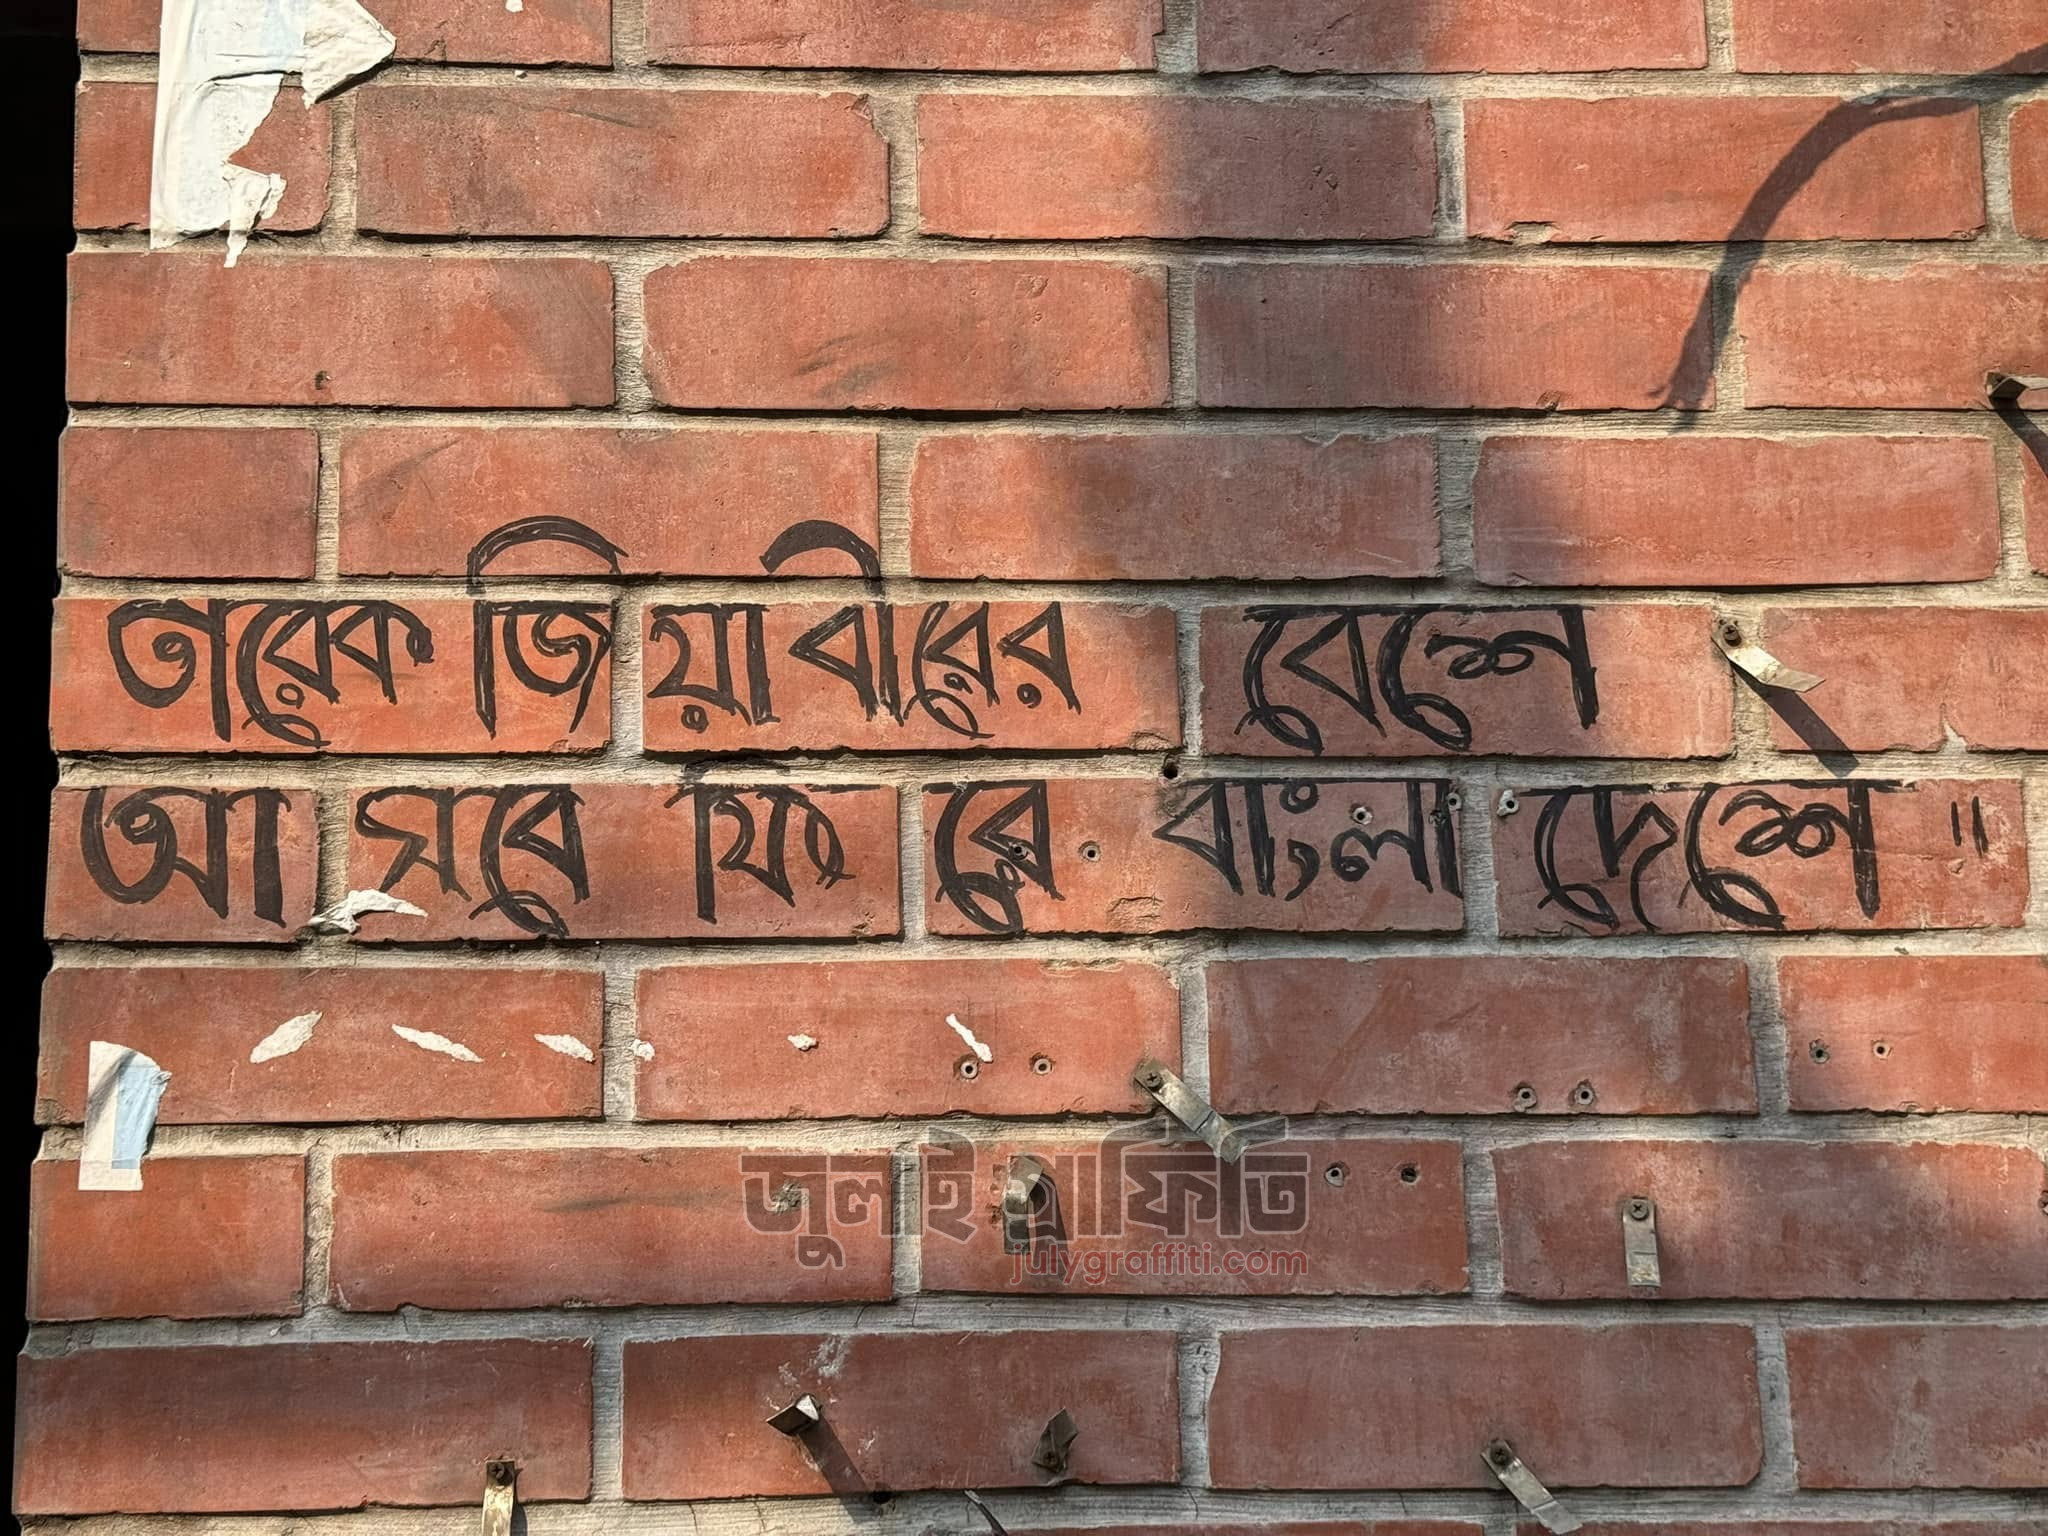 তারেক জিয়া বীরের বেশে
আসবে ফিরে বাংলাদেশে "
জুলাই গ্রাফিতি
julygraffiti.com